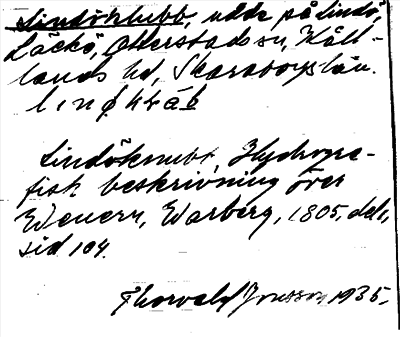 Lindöklubb, udde på Lindö,
Läckö, Otterstads sn, Kål-
lands hd, Skaraborgs län.
Lindöknubb, Hydrogra-
fisk beskrivning över
Wenern, Warberg, 1805, del 1,
sid 104.
Thorvald Jonsson 1935.